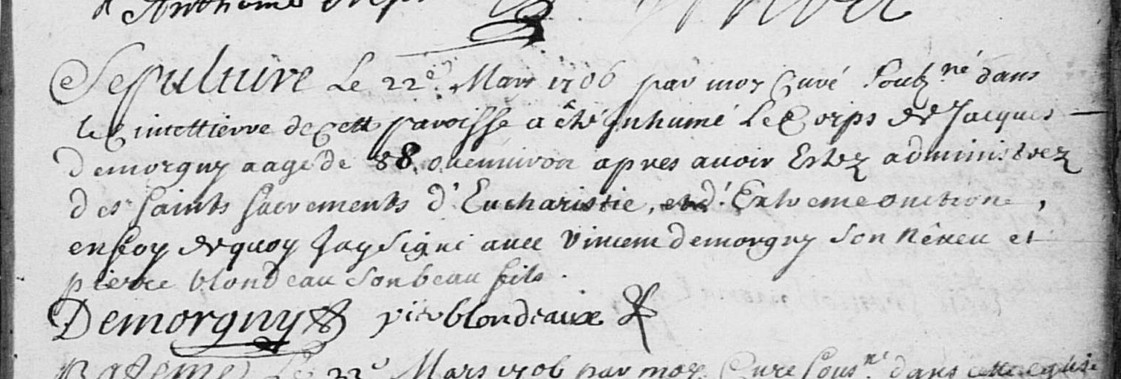 Sepulture Le 22e. Mars 1706 par moy Curé Soubz.né dans
le Cimettierre de Cett paroisse a êté Inhumé Le Corps de Jacques
demorgny aagé de 88. ou enuiron apres auoir Estez administrez
des saints sacrements d'Eucharistie, et d'Extreme onctione,
en foy de quoy Jay signé auec Vincent demorgny son Neueu et
pierre blondeau son beau fils.
Demorgny pier blondeaux
Bateme Le 23e Mars 1706 par moy Curé Sous.né dans cette eglise